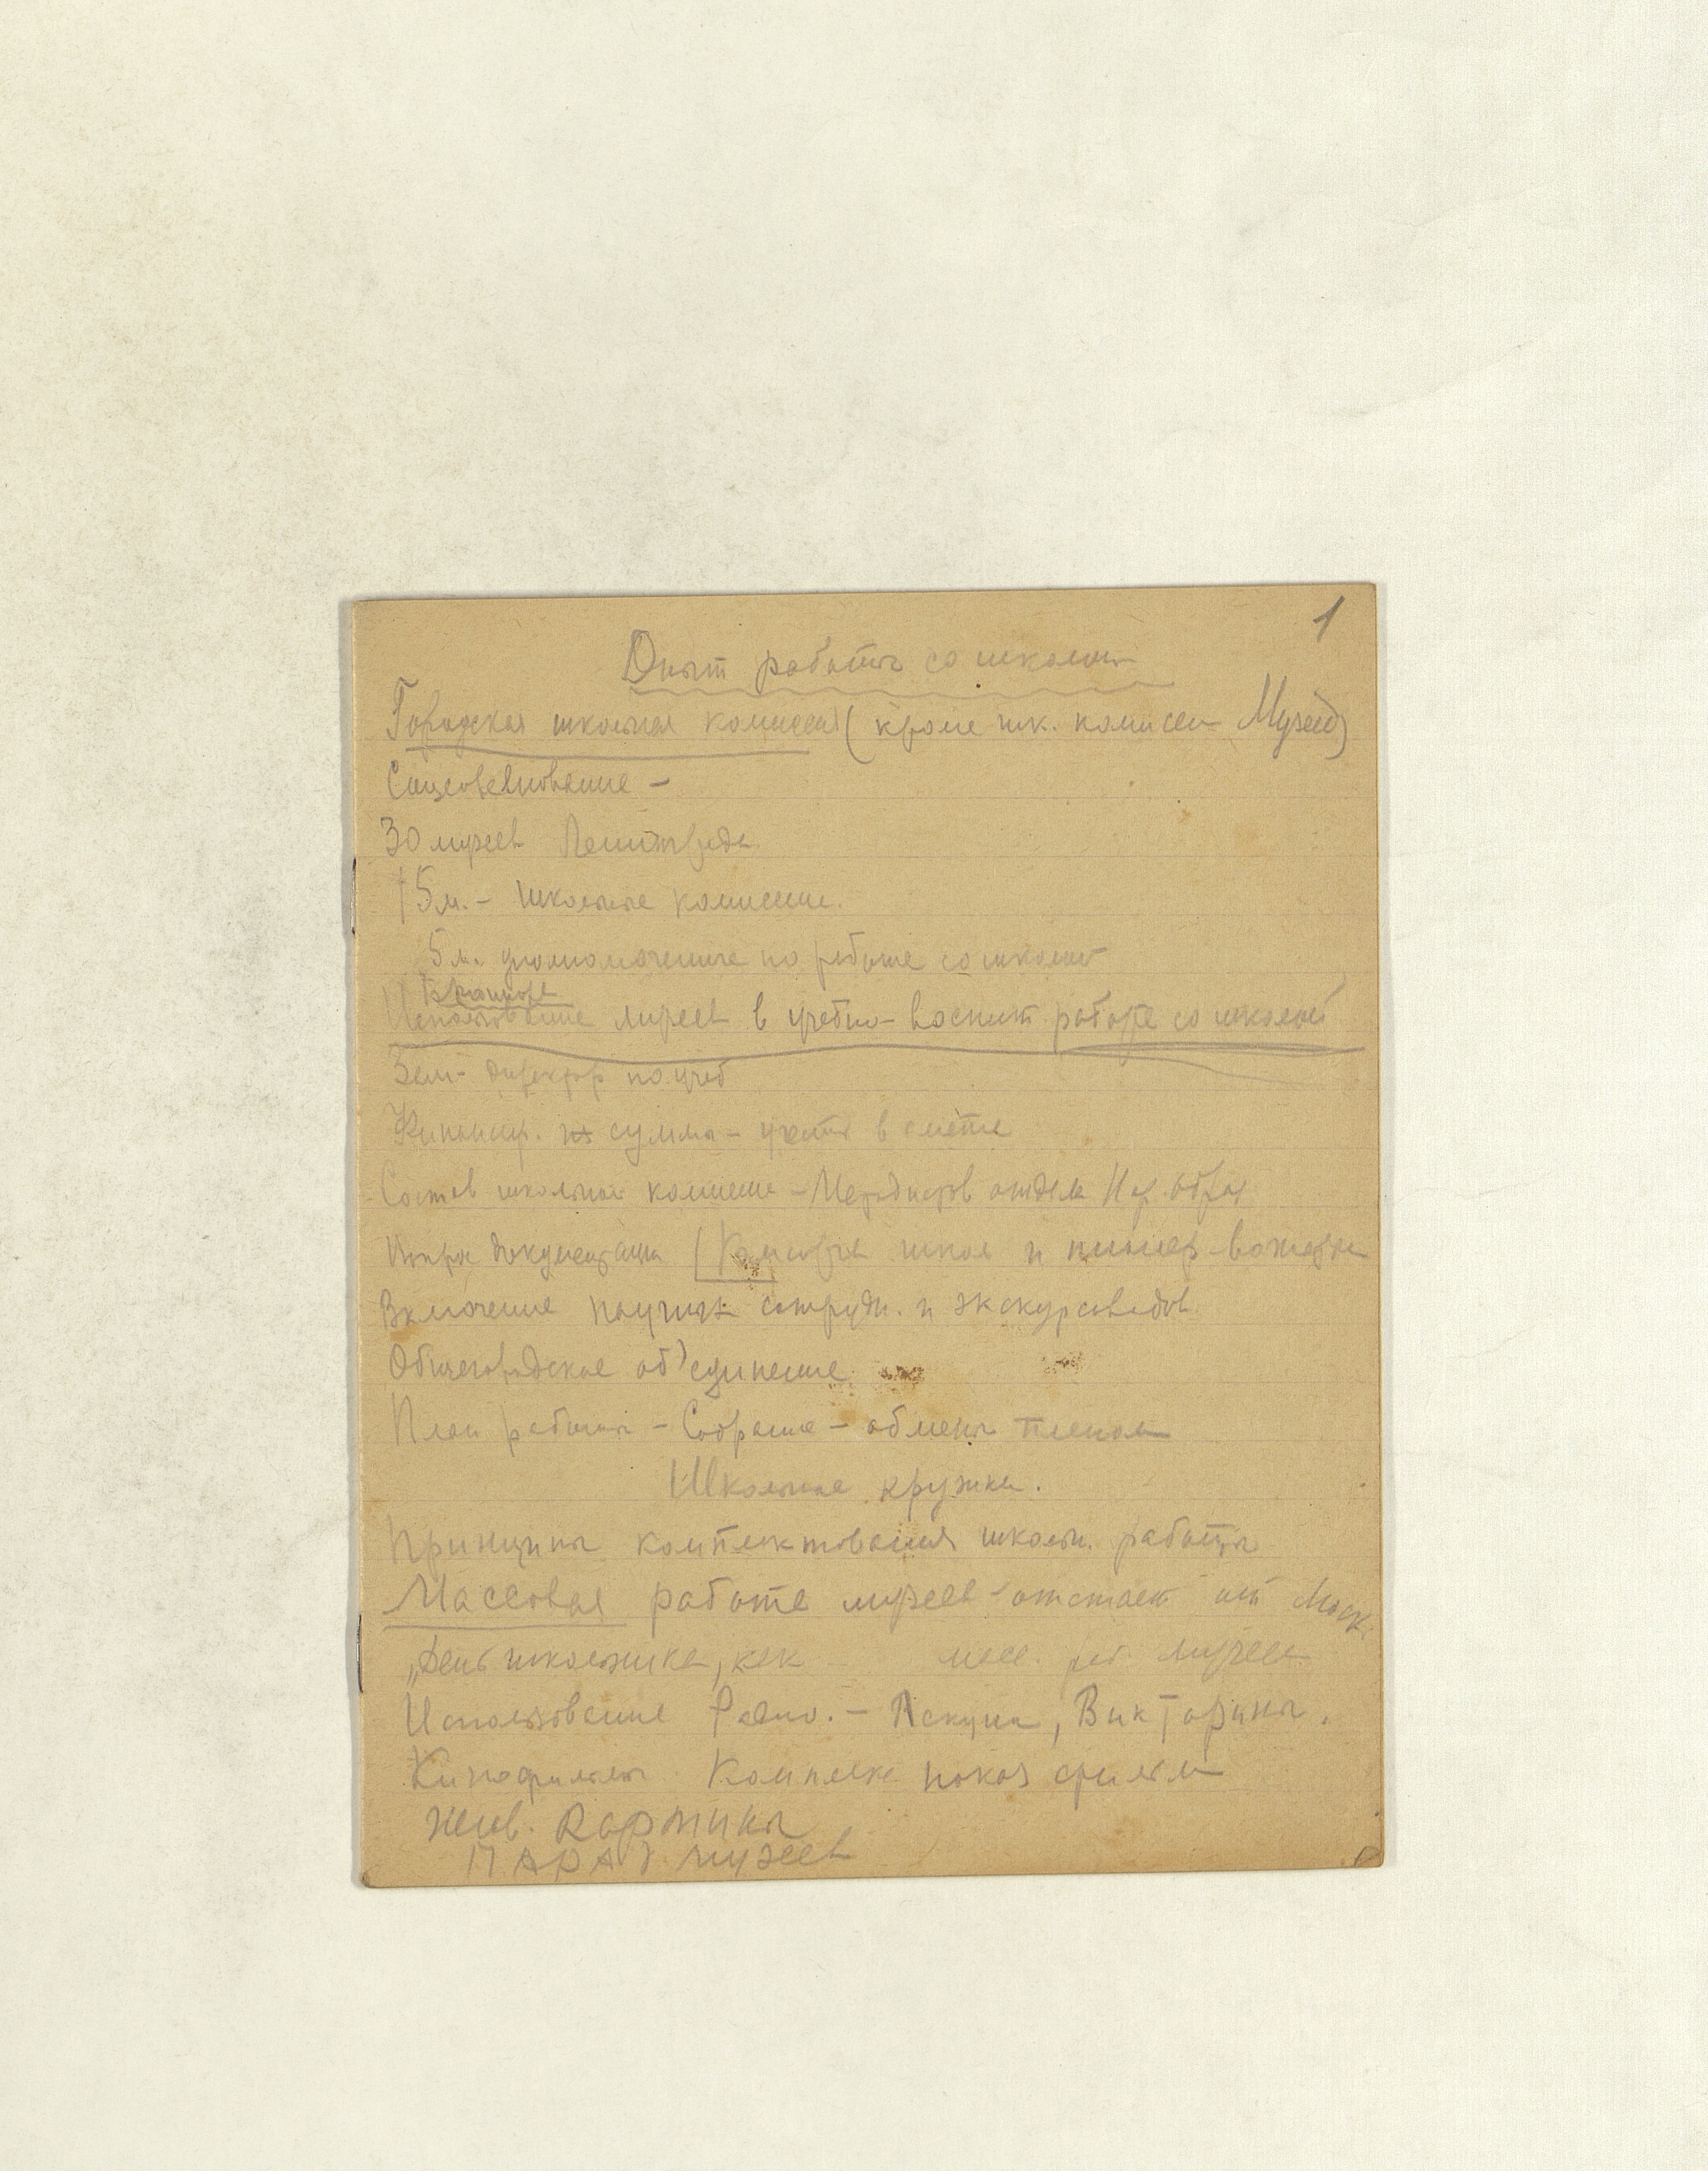 1
Опыт работы со школами
Городская школьная комиссия (кроме шк. комиссии Музеев)
Соцсоревнование –
30 музеев Ленинграда
15 м. – школьные комиссии.
5 м. уполномоченные по работе со школами
Использование музеев в учебно-воспит работе со школой
Зам. директор по учеб
Финансир. сумма – учесть в смете
Состав школьной комиссии – Методистов отдела Нар. обра
документация школ и пионер-вожатых
Включение научных сотрудн. и экскурсоводов.
Общегородское об'единение.
План работы – Собрание – обмены
Школьные кружки.
Принципы комплектования школьн. работы
Массовая работа музеев отстает от Моск.
„День школьника, как масс. раб. музеев
Использование Радио. – Лекции, Викторины.
Кинофильмы. Комплекс показ фильм
жив. картины
ПАРАД музеев